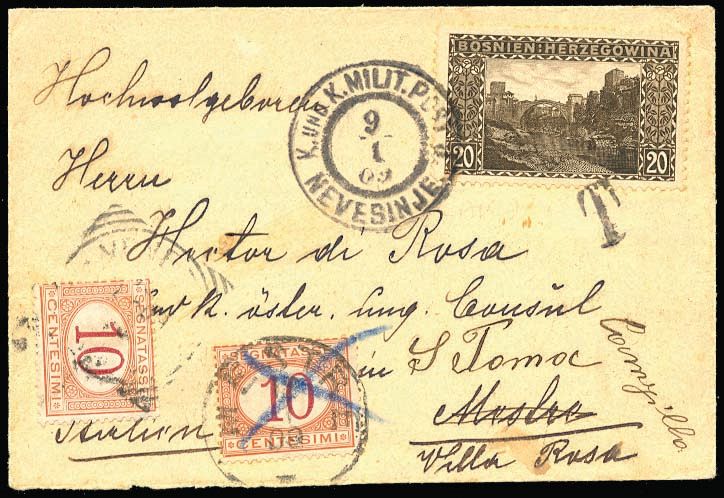 BOSNIEN-HERZEGOWINA
20 20
K. UND K. MILIT. POST
9
I
09
NEVESINJE
T
Hochwolgeboren
Herrn
Hector di Rosa
k. öster. ung. Consul
in S Toma
Mestre
Villa Rosa
Italien
SEGNATASSE
10
CENTESIMI
SEGNATASSE
10
CENTESIMI